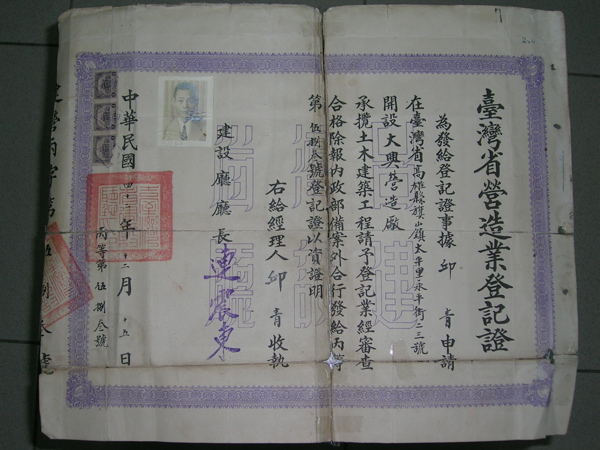 臺灣省營造業登記證
為發給登記證事據邱青申請
在臺灣省高雄縣旗山鎮太平里永平街二三號
開設大興營造廠
承攬土木建築工程請予登記業經審查
合格除報內政部備案外合行發給丙等
第伍捌叁號登記證以資證明
右給經理人邱青收執
建設廳廳長連震東
中華民國四十二年十二月十五日
丙等第伍捌叁號